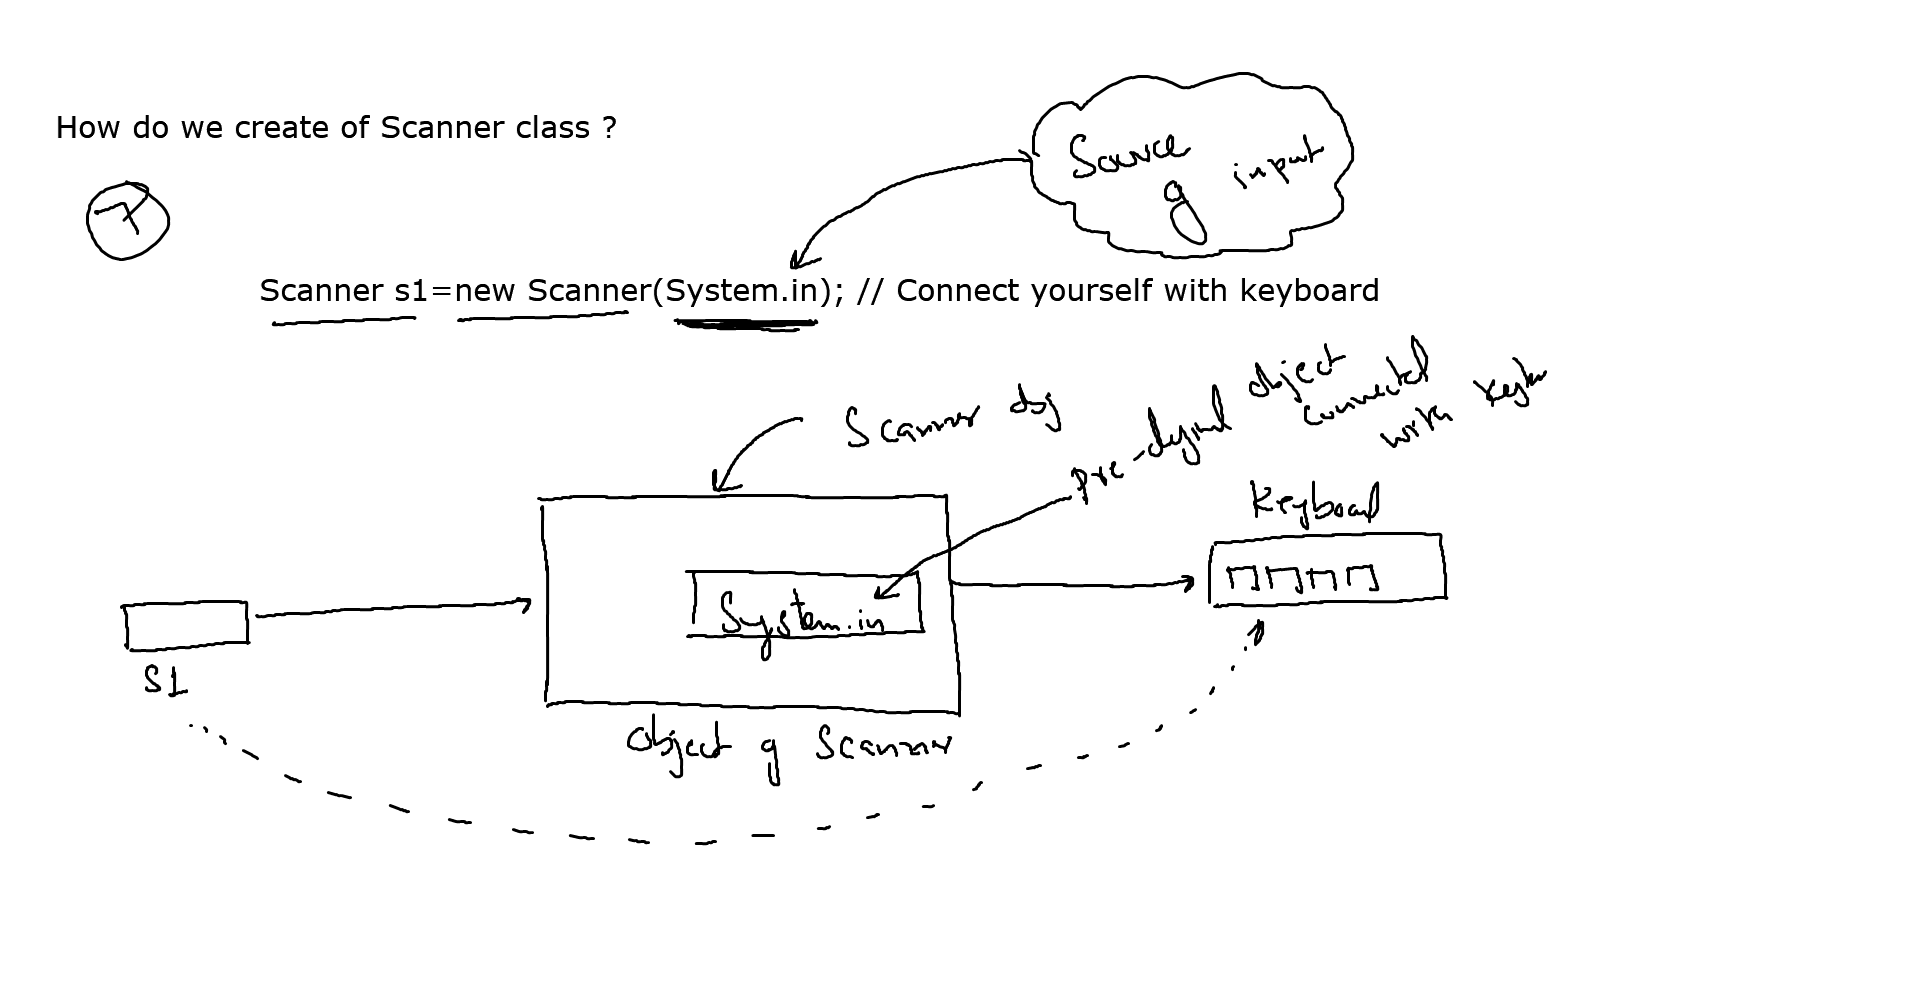 How do we create of Scanner class ?
7
Source
of input
Scanner s1=new Scanner(System.in); // Connect yourself with keyboard
Scanner obj
pre-defined object
connected
with
Keyboard
System.in
S1
object of Scanner